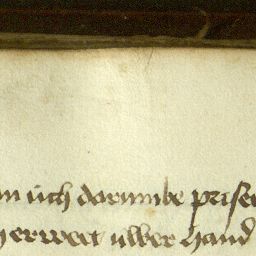 üch dorumbe prise
herwert ulwer hand